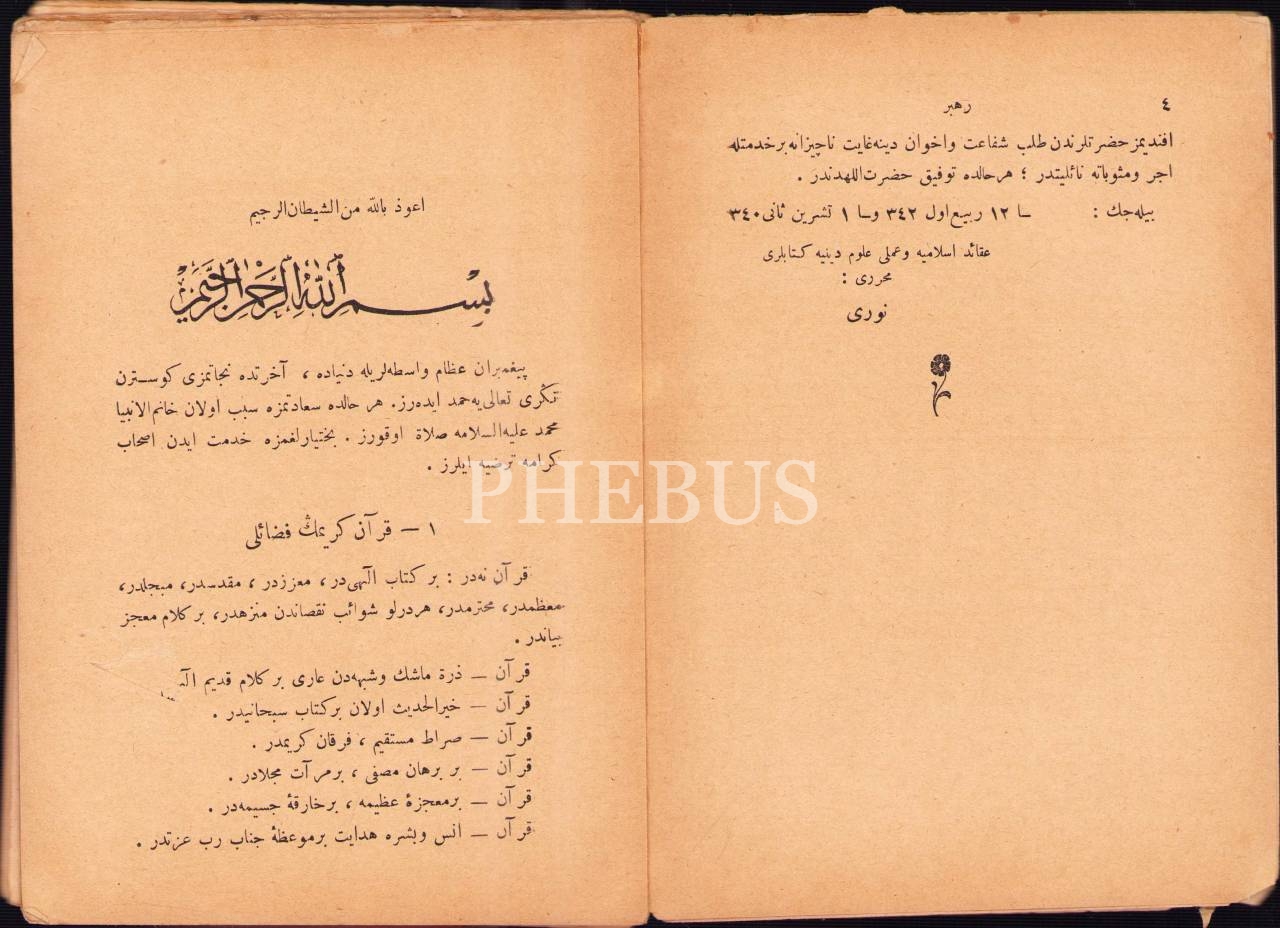 ٤
رهبر
افندیمز حضرتلرندن طلب شفاعت واخوان دینه غایت ناچیزانه برخدمتله
اجر ومثوباته نائلیتدر ؛ هرحالده توفیق حضرت‌اللهدندر .
بیله‌جك : ـا ١٢ ربیع اول ٣٤٢ وـا ١ تشرین ثانی ٣٤٠
عقائد اسلامیه وعملی علوم دینیه كتابلری
محرری :
نوری
اعوذ بالله من الشیطان الرجیم
بِسْمِ اللهِ الرَّحْمٰنِ الرَّحِيمِ
پیغمبران عظام واسطه‌لریله دنیاده ، آخرتده نجاتمزی كوسترن
تڭری تعالی‌یه حمد ایده‌رز. هر حالده سعادتمزه سبب اولان خاتم الانبیا
محمد علیه‌السلامه صلاة اوقورز . بختیارلغمزه خدمت ایدن اصحاب
كرامه ترضیه ایلرز .
١ — قرآن كریمڭ فضائلی
قرآن نه‌در : بر كتاب آلهی‌در ، معززدر ، مقدسدر، مبجلدر،
معظمدر، محترمدر، هردرلو شوائب نقصاندن منزهدر، بر كلام معجز
بیاندر .
قرآن — ذرة ماشك وشبهه‌دن عاری بر كلام قدیم
قرآن — خیرالحدیث اولان بركتاب سبحانیدر .
قرآن — صراط مستقیم ، فرقان كریمدر .
قرآن — بر برهان مصفی ، برمرآت مجلادر .
قرآن — برمعجزهٔ عظیمه ، برخارقهٔ جسیمه‌در .
قرآن — انس وبشره هدایت برموعظهٔ جناب رب عزتدر .
PHEBUS